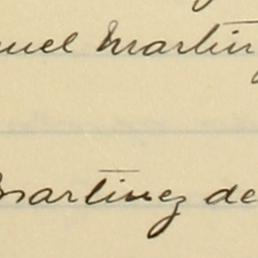 uel Martin
Martinez de